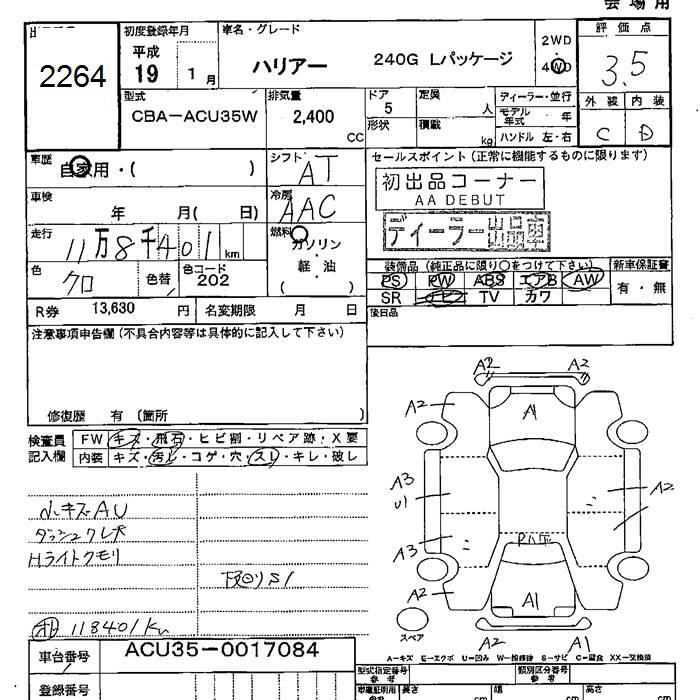 会場用
2264
初度登録年月
平成
19 1月
車名・グレード
ハリアー 240G Lパッケージ
2WD
4WD
評価点
3.5
外装 内装
C D
型式
CBA-ACU35W
排気量
2,400
CC
ドア
5
形状
定員
人
積載
kg
ディーラー・並行
モデル年式 年
ハンドル 左・右
車歴
自家用・( )
シフト
AT
セールスポイント(正常に機能するものに限ります)
初出品コーナー
AA DEBUT
ディーラー出品車
車検
年 月( 日)
冷房
AAC
走行
11万8千401km
燃料
ガソリン
軽・油
( )
色
クロ
色替
色コード
202
装備品(純正品に限り○をつけて下さい)
PS PW ABS エアB AW
SR ナビ TV カワ
新車保証書
有・無
後日品
R券 13,630 円
名変期限 月 日
注意事項申告欄(不具合内容等は具体的に記入して下さい)
修復歴 有 (箇所 )
検査員
記入欄
FW キズ・飛石・ヒビ割・リペア跡・X要
内装 キズ・汚レ・コゲ・穴・スレ・キレ・破レ
小キズAU
ダッシュクレ
Hライトクモリ
下回りS1
118401km
車台番号 ACU35-0017084
登録番号
A2 A2
A2
A1
A3
U1
A2
A3
A2
A1
スペア
A2 A1
A-キズ E-エクボ U-凹み W-補修跡 S-サビ C-腐食 XX-交換済
型式指定番号
参考
類別区分番号
参考
長さ
cm
幅
cm
高さ
cm